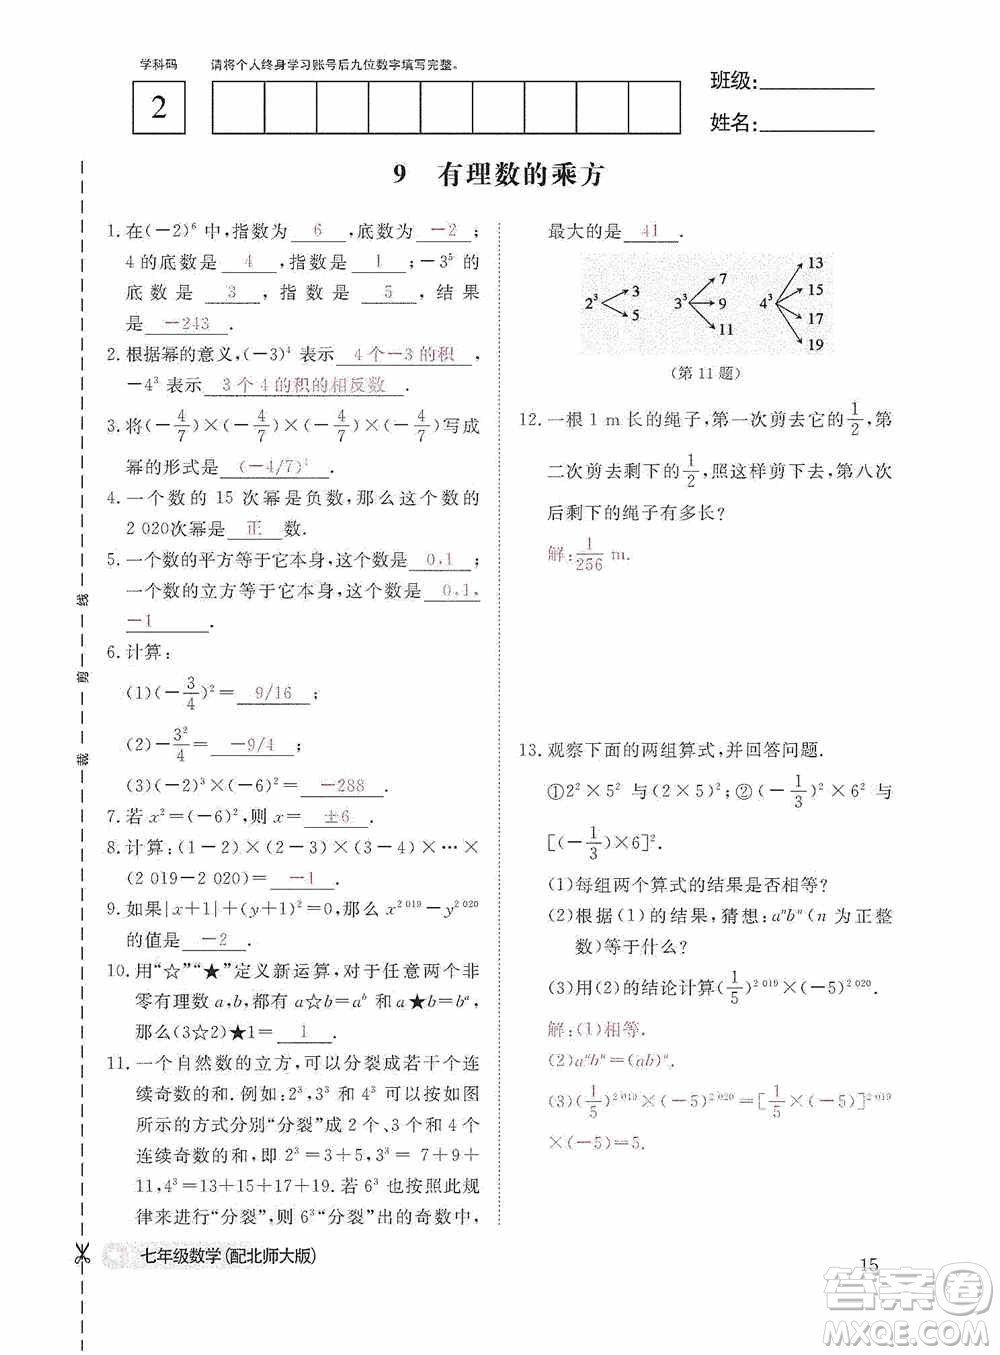 学科码 请将个人终身学习账号后九位数字填写完整。
2
班级:
姓名:
9 有理数的乘方
1. 在(－2)⁶ 中,指数为 6 ,底数为 －2 ;
4 的底数是 4 ,指数是 1 ;－3⁵ 的
底数是 3 ,指数是 5 ,结果
是 －243 .
2. 根据幂的意义,(－3)⁴ 表示 4 个－3 的积 ,
－4³ 表示 3 个 4 的积的相反数 .
3. 将(－4/7)×(－4/7)×(－4/7)×(－4/7)写成
幂的形式是 (－4/7)⁴ .
4. 一个数的 15 次幂是负数,那么这个数的
2 020次幂是 正 数.
5. 一个数的平方等于它本身,这个数是 0,1 ;
一个数的立方等于它本身,这个数是 0,1,
－1 .
6. 计算:
(1)(－3/4)²= 9/16 ;
(2)－3²/4= －9/4 ;
(3)(－2)³×(－6)²= －288 .
7. 若 x²=(－6)²,则 x= ±6 .
8. 计算:(1－2)×(2－3)×(3－4)×…×
(2 019－2 020)= －1 .
9. 如果|x＋1|＋(y＋1)²=0,那么 x²⁰¹⁹－y²⁰²⁰
的值是 －2 .
10. 用“☆”“★”定义新运算,对于任意两个非
零有理数 a,b,都有 a☆b=aᵇ 和a★b=bᵃ,
那么(3☆2)★1= 1 .
11. 一个自然数的立方,可以分裂成若干个连
续奇数的和.例如:2³,3³ 和 4³ 分别可以按如图
所示的方式分别“分裂”成 2 个、3 个和 4 个
连续奇数的和,即 2³=3＋5,3³= 7＋9＋
11,4³=13＋15＋17＋19.若 6³ 也按照此规
律来进行“分裂”,则 6³“分裂”出的奇数中,
最大的是 41 .
2³ 3 5
3³ 7 9 11
4³ 13 15 17 19
(第 11 题)
12. 一根 1 m 长的绳子,第一次剪去它的1/2,第
二次剪去剩下的1/2,照这样剪下去,第八次
后剩下的绳子有多长?
解:1/256 m.
13. 观察下面的两组算式,并回答问题.
①2²×5² 与(2×5)²;②(－1/3)²×6² 与
[(－1/3)×6]².
(1)每组两个算式的结果是否相等?
(2)根据(1)的结果,猜想:aⁿbⁿ(n 为正整
数)等于什么?
(3)用(2)的结论计算(1/5)²⁰¹⁹×(－5)²⁰²⁰.
解:(1)相等.
(2)aⁿbⁿ=(ab)ⁿ.
(3)(1/5)²⁰¹⁹×(－5)²⁰²⁰=[1/5×(－5)]²⁰¹⁹
×(－5)=5.
线 剪 裁
七年级数学(配北师大版)
15
答案圈
MXQE.COM